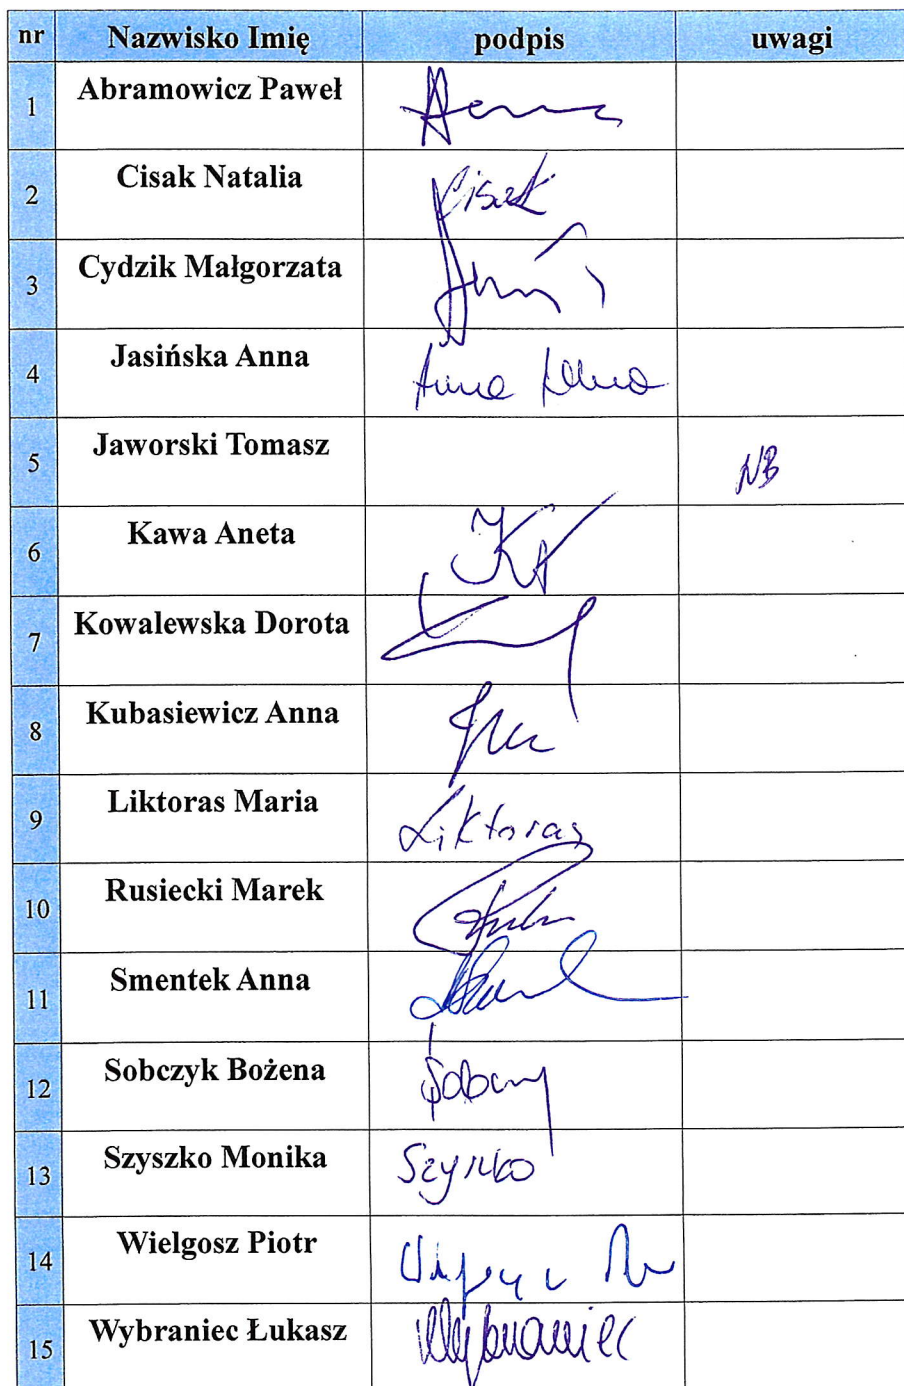 nr Nazwisko Imię podpis uwagi
1 Abramowicz Paweł
2 Cisak Natalia Cisak
3 Cydzik Małgorzata
4 Jasińska Anna Anna
5 Jaworski Tomasz NB
6 Kawa Aneta KA
7 Kowalewska Dorota
8 Kubasiewicz Anna
9 Liktoras Maria Liktoras
10 Rusiecki Marek
11 Smentek Anna
12 Sobczyk Bożena
13 Szyszko Monika Szyszko
14 Wielgosz Piotr
15 Wybraniec Łukasz Wybraniec